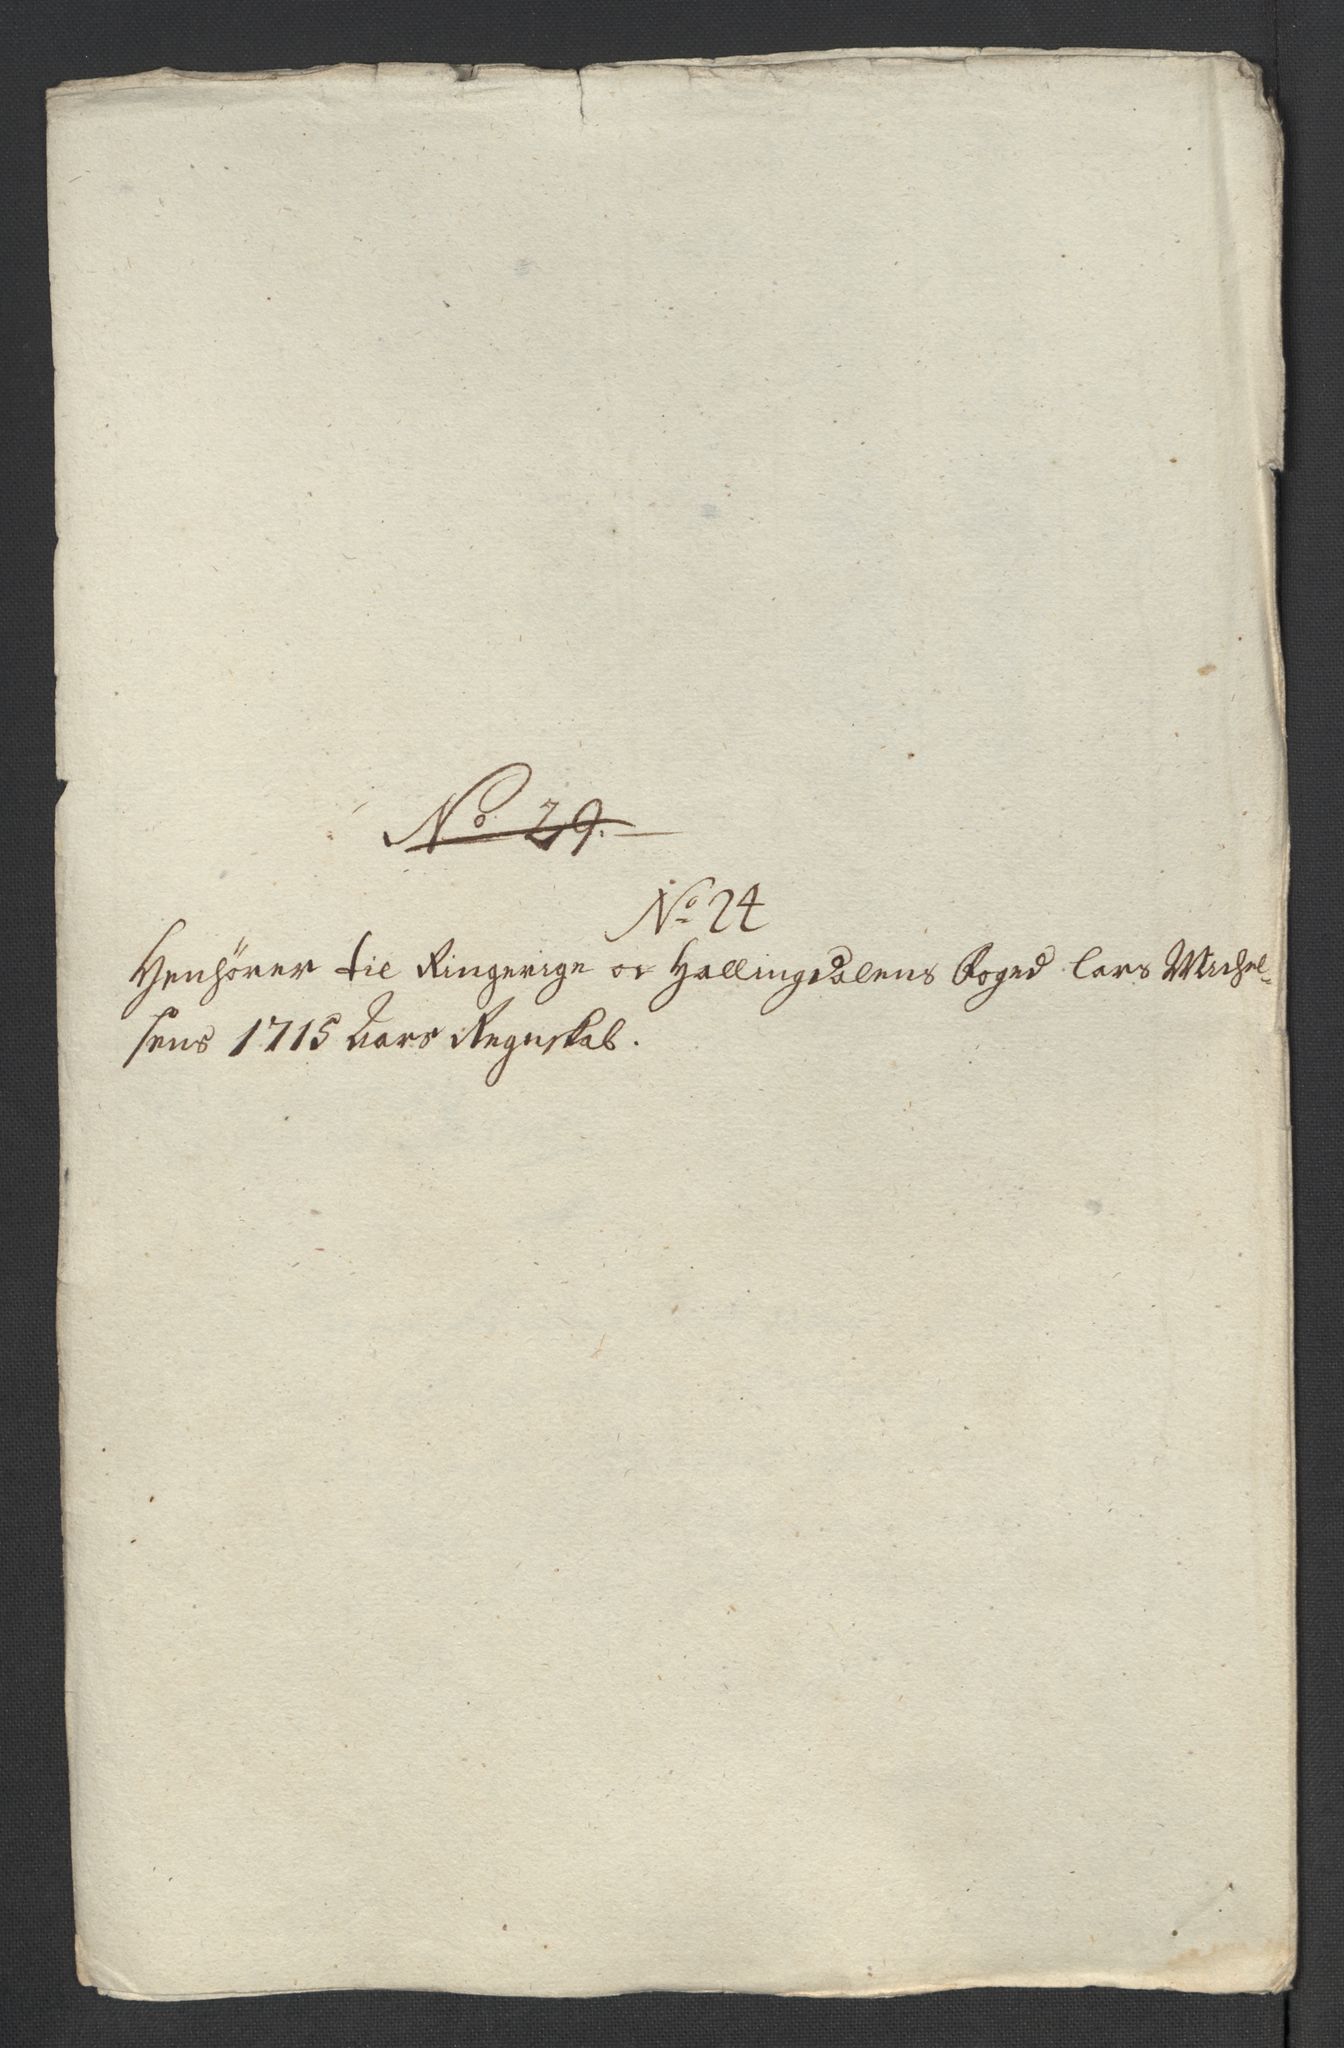 No 29.
No 24
Henhörer til Ringerige oc Hallingdalens Foged Lars Michel-
sens 1715 Aars Regnskab.